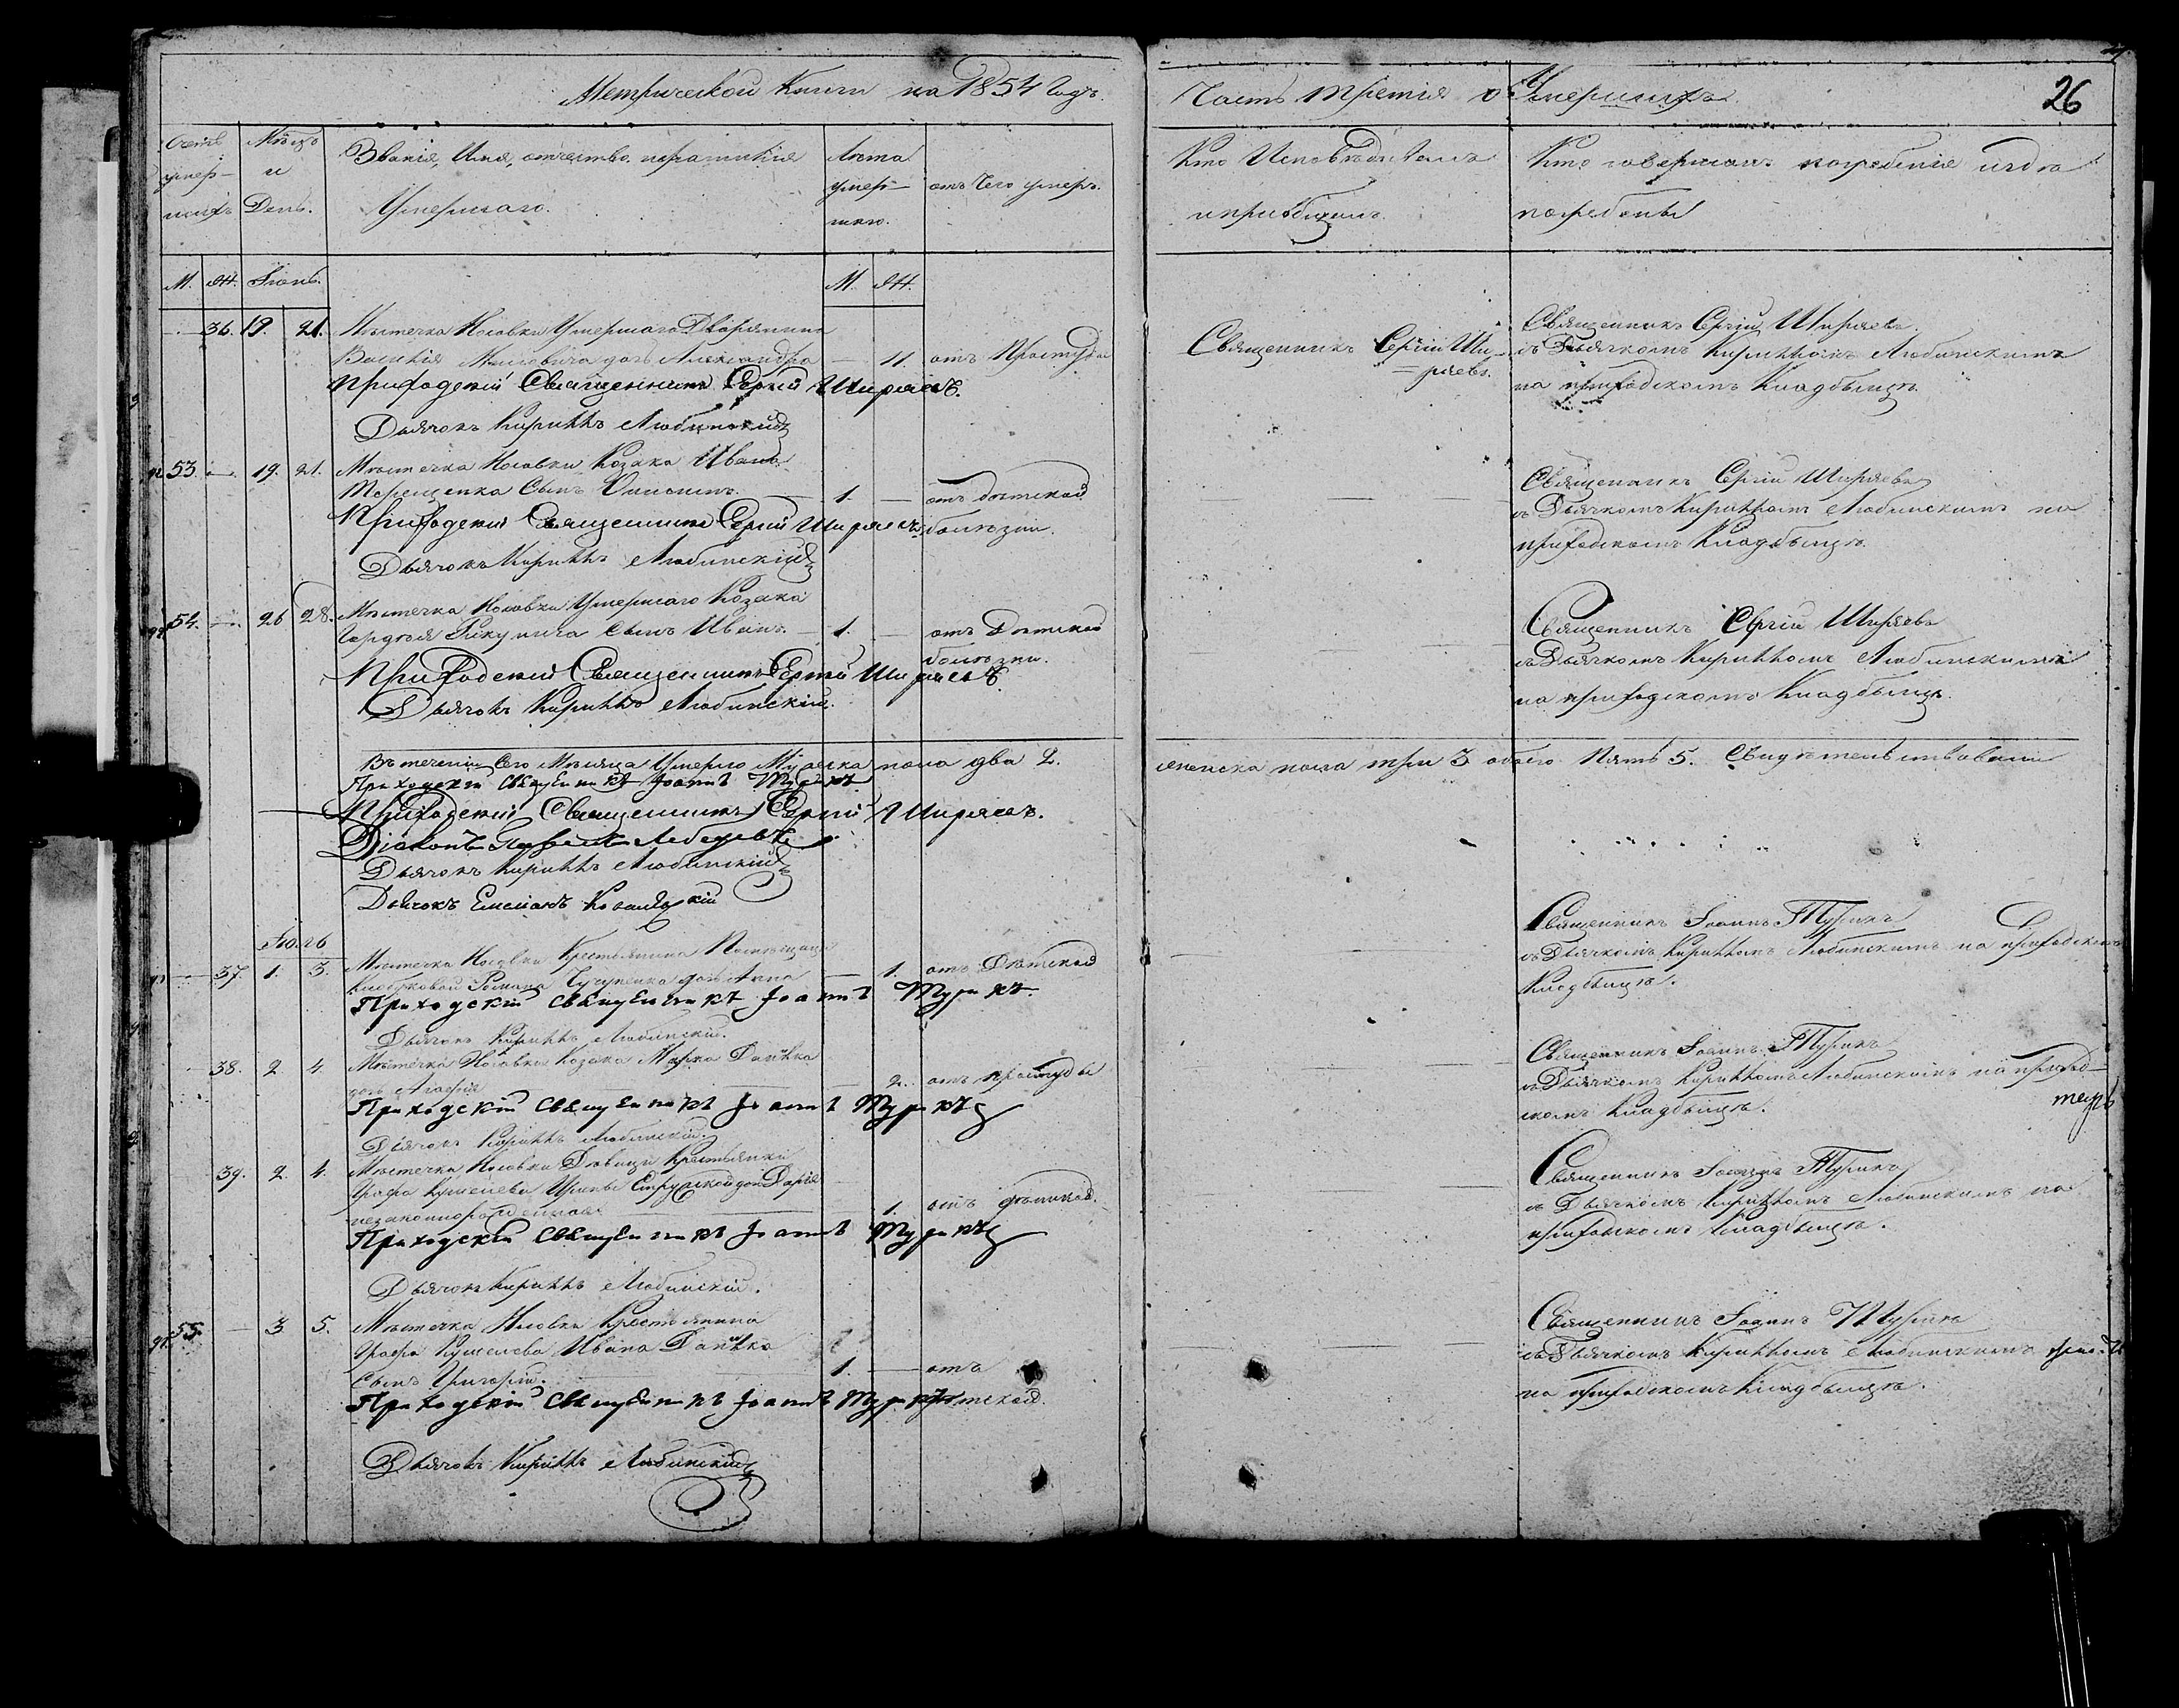 Метрической Книги на 1854 Годъ.
Часть третія о Умершихъ
26
Счетъ умер-шихъ
Мѣсяцъ и День.
Званіе, Имя, отчество, и фамилія Умершаго.
Лета умер-шаго.
отъ Чего умеръ.
Кто Исповѣдывалъ и приобщалъ.
Кто совершалъ погребеніе и гдѣ погребены
М. Ж. Іюнь. М. Ж.
36. 19. 21. Мѣстечка Носовки Умершаго Дворянина
Василія дочь Александра — 11. отъ Простуды
Приходскій Священникъ Сергій Ширяевъ.
Дьячокъ Кириккъ Любинскій
Священникъ Сергій Ши-
ряевъ.
Священникъ Сергій Ширяевъ
съ Дьячкомъ Кириккомъ Любинскимъ
на приходскомъ Кладбищѣ.
53. — 19. 21. Мѣстечка Носовки Козака Ивана
Терещенка Сынъ — 1. — отъ дѣтской
Приходскій Священникъ Сергій Ширяевъ болѣзни.
Дьячокъ Кириккъ Любинскій
Священникъ Сергій Ширяевъ
съ Дьячкомъ Кириккомъ Любинскимъ на
приходскомъ Кладбищѣ.
54. — 26 28. Мѣстечка Носовки Умершаго Козака
Гордѣя сынъ Иванъ. — 1. — отъ Дѣтской
болѣзни.
Приходскій Священникъ Сергій Ширяевъ.
Дьячокъ Кириккъ Любинскій.
Священникъ Сергій Ширяевъ
съ Дьячкомъ Кириккомъ Любинскимъ
на приходскомъ Кладбищѣ.
Въ теченіи Сего Мѣсяца Умерло Мужска пола два 2. женска пола три 3 обоего Пять 5. Свидѣтельствовали
Приходскій Священникъ Іоаннъ Турикъ
Приходскій Священникъ Сергій Ширяевъ.
Діаконъ Лебедевъ
Дьячокъ Кириккъ Любинскій
Дьячокъ
Іюль
37. 1. 3. Мѣстечка Носовки Крестьянина Помѣщицы
Романа дочь Анна — 1. отъ Дѣтской
Приходскій Священникъ Іоаннъ Турикъ.
Дьячокъ Кириккъ Любинскій.
Священникъ Іоаннъ Турикъ
съ Дьячкомъ Кириккомъ Любинскимъ на приходскомъ
Кладбищѣ.
38. 2. 4. Мѣстечка Носовки Козака Марка
дочь — 2. отъ простуды
Приходскій Священникъ Іоаннъ Турикъ
Дьячокъ Кириккъ Любинскій.
Священникъ Іоаннъ Турикъ
съ Дьячкомъ Кириккомъ Любинскимъ на приход-
скомъ Кладбищѣ.
39. 2. 4. Мѣстечка Носовки Дѣвицы Крестьянки
Графа Кушелева Ирины дочь Дарія
незаконнорожденная — 1. отъ дѣтской.
Приходскій Священникъ Іоаннъ Турикъ
Дьячокъ Кириккъ Любинскій.
Священникъ Іоаннъ Турикъ
съ Дьячкомъ Кириккомъ Любинскимъ на
приходскомъ Кладбищѣ.
55. — 3 5. Мѣстечка Носовки Крестьянина
Графа Кушелева Ивана
Сынъ Григорій. — 1. — отъ
Приходскій Священникъ Іоаннъ Турикъ дѣтской.
Дьячокъ Кириккъ Любинскій
Священникъ Іоаннъ Турикъ
съ Дьячкомъ Кириккомъ Любинскимъ
на приходскомъ Кладбищѣ.